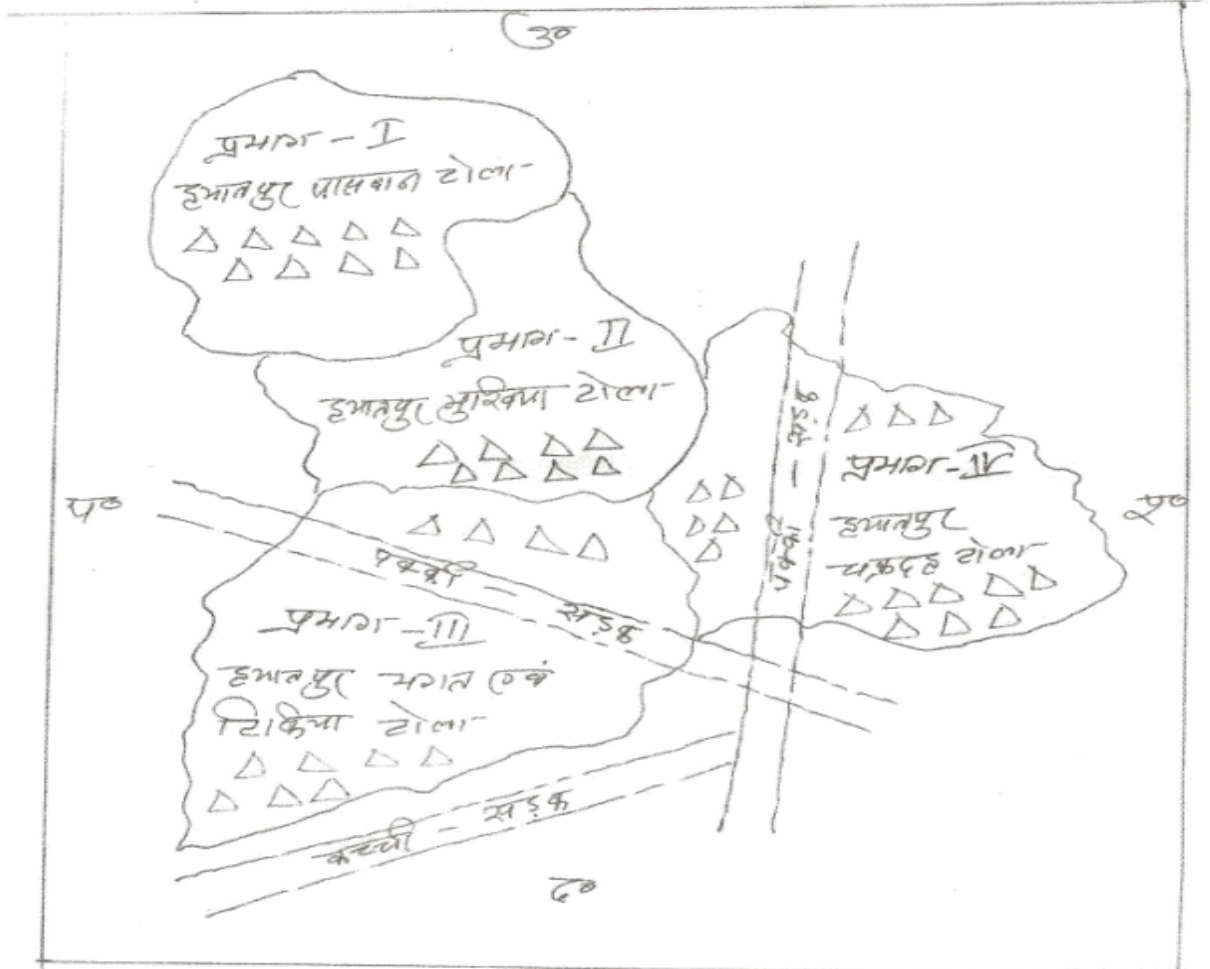 उ०
प्रभाग - I
हयातपुर पासवान टोला
प्रभाग - II
हयातपुर मुखिया टोला
प०
पक्की - सड़क
प्रभाग - III
हयातपुर भगत एवं
टिकिया टोला
कच्ची - सड़क
पक्की - सड़क
प्रभाग - IV
हयातपुर
चकदह टोला
पू०
द०